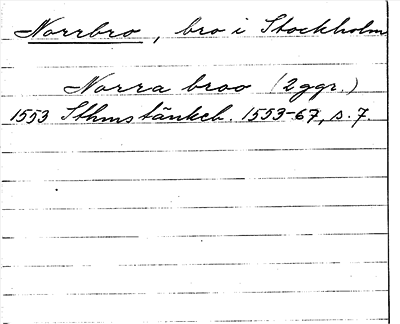 Norrbro, bro i Stockholm
Norra broo (2 ggr.)
1553 Sthms tänkeb. 1553-67, s. 7.